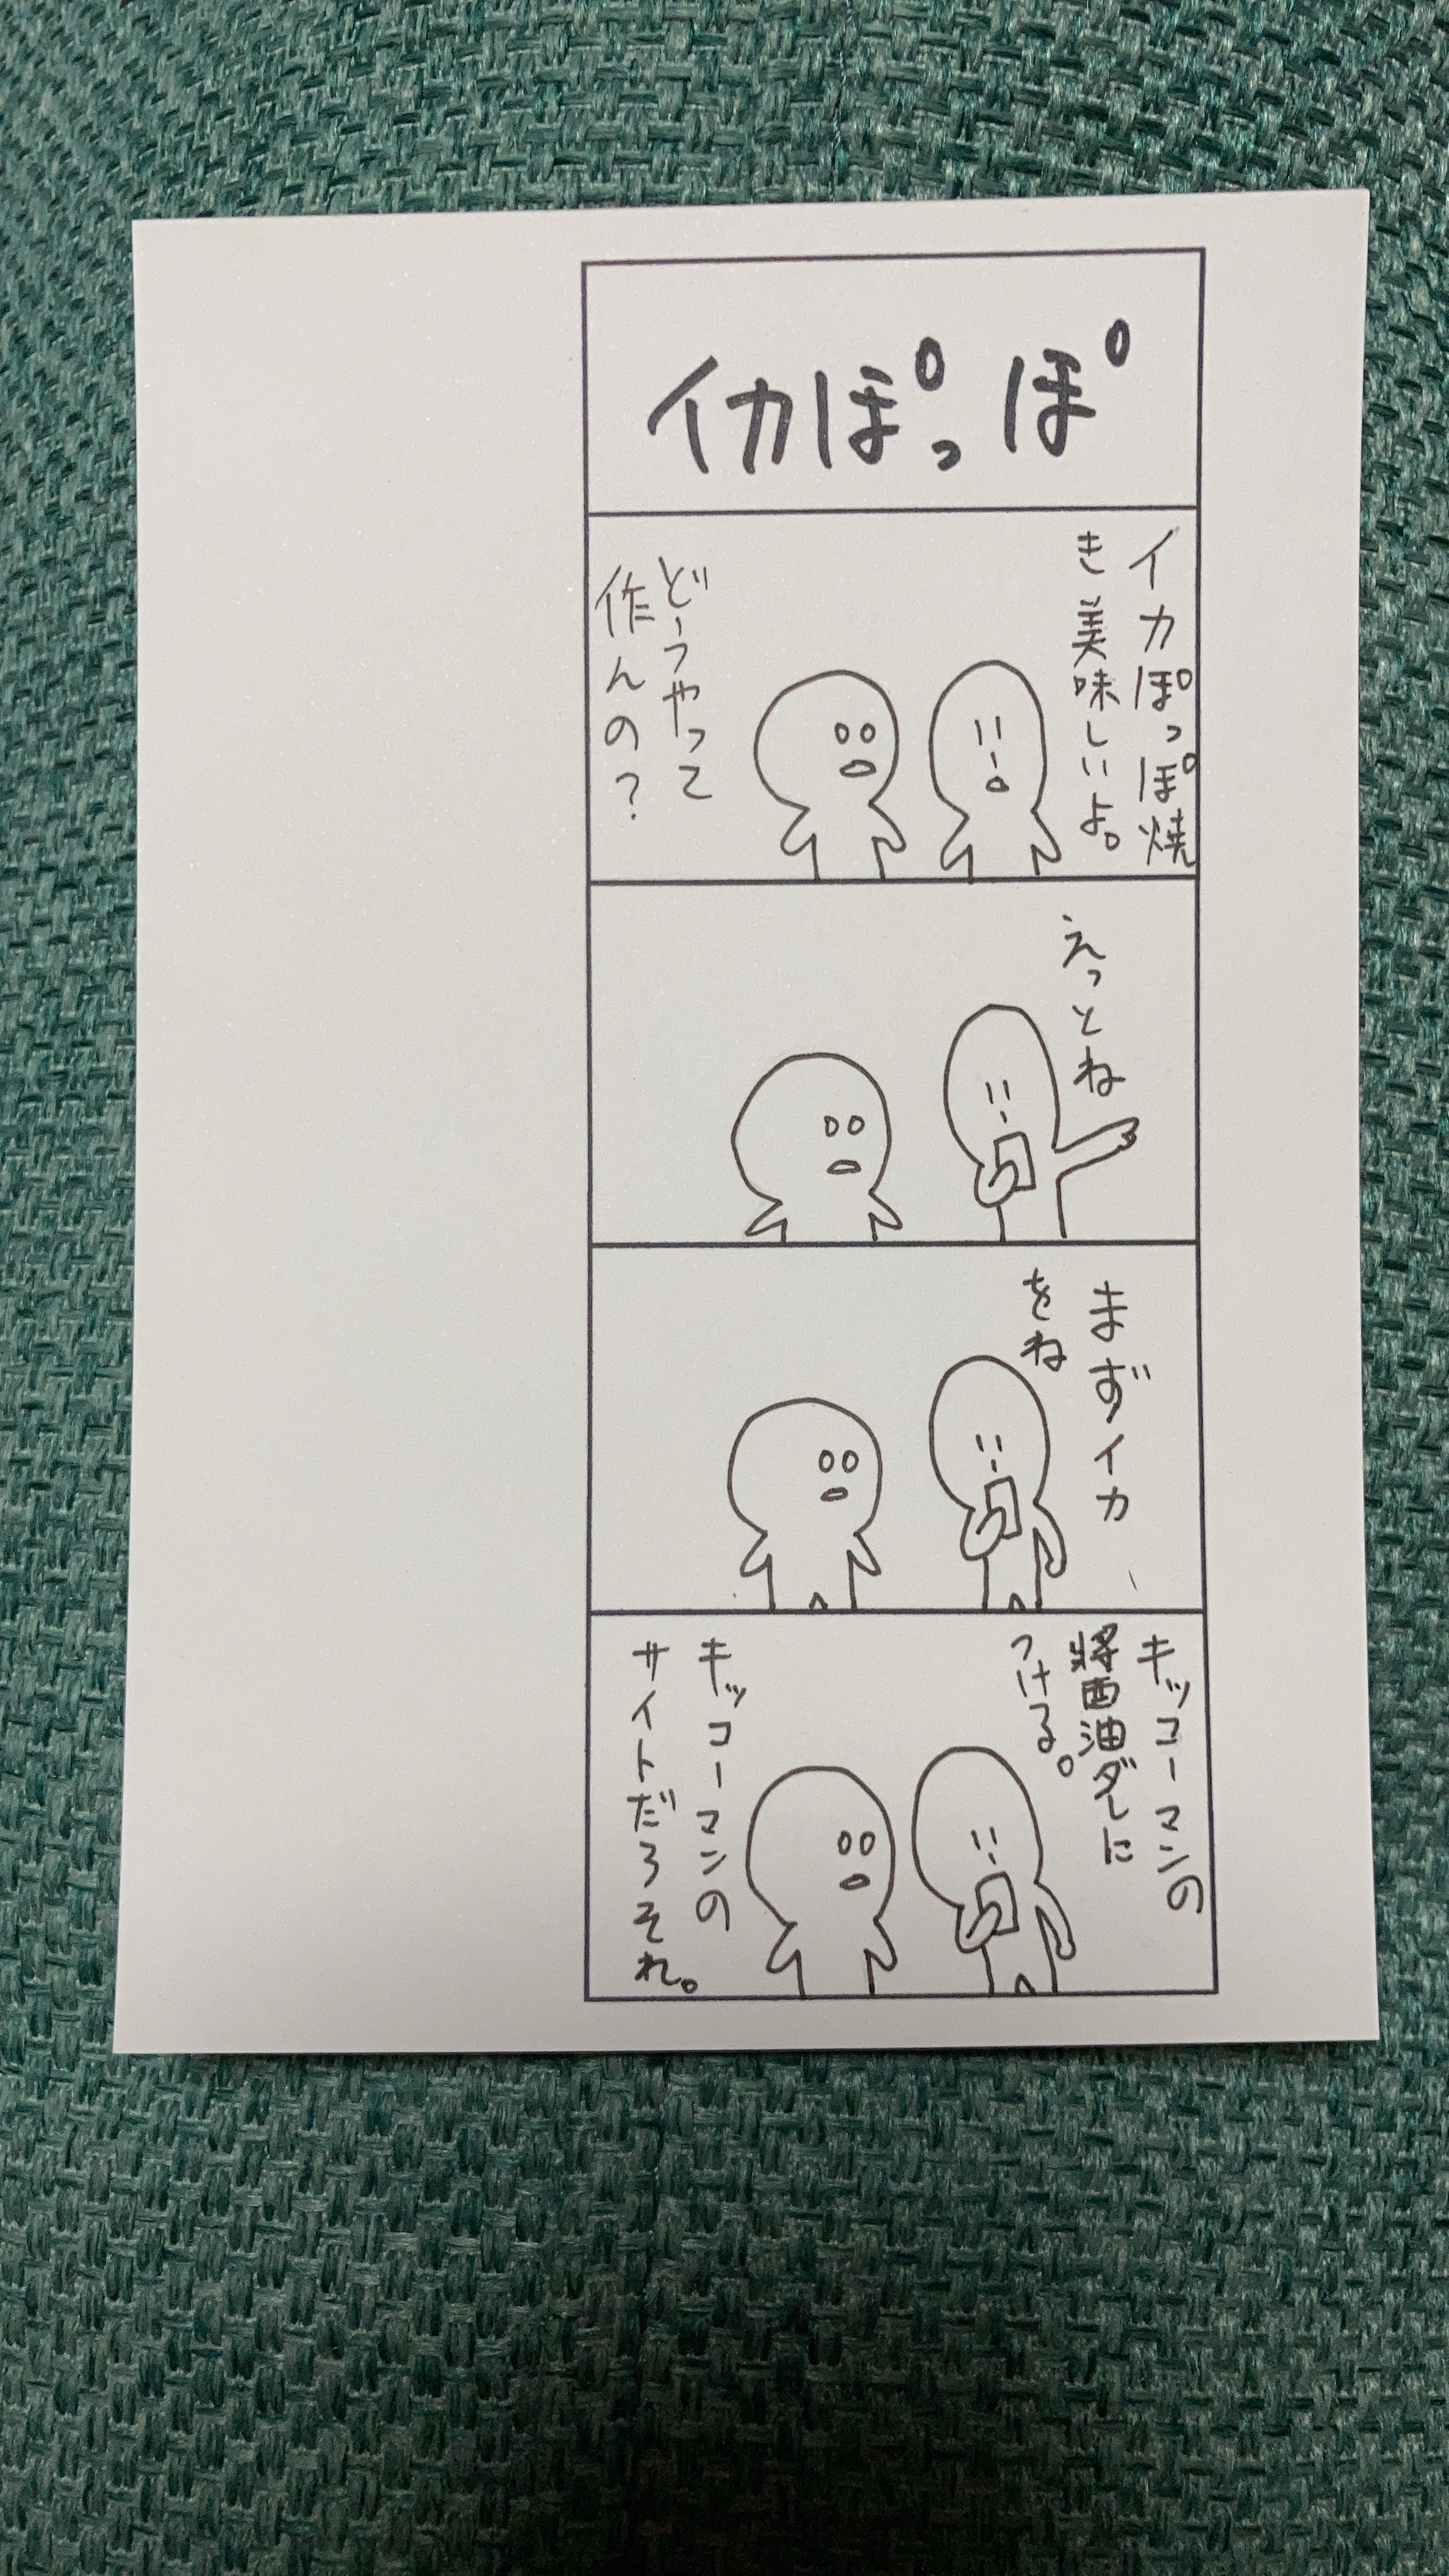 イカぽっぽ
イカぽっぽ焼
き美味しいよ。
どうやって
作んの?
えっとね
まずイカ
をね
キッコーマンの
醤油ダレに
つける。
キッコーマンの
サイトだろそれ。